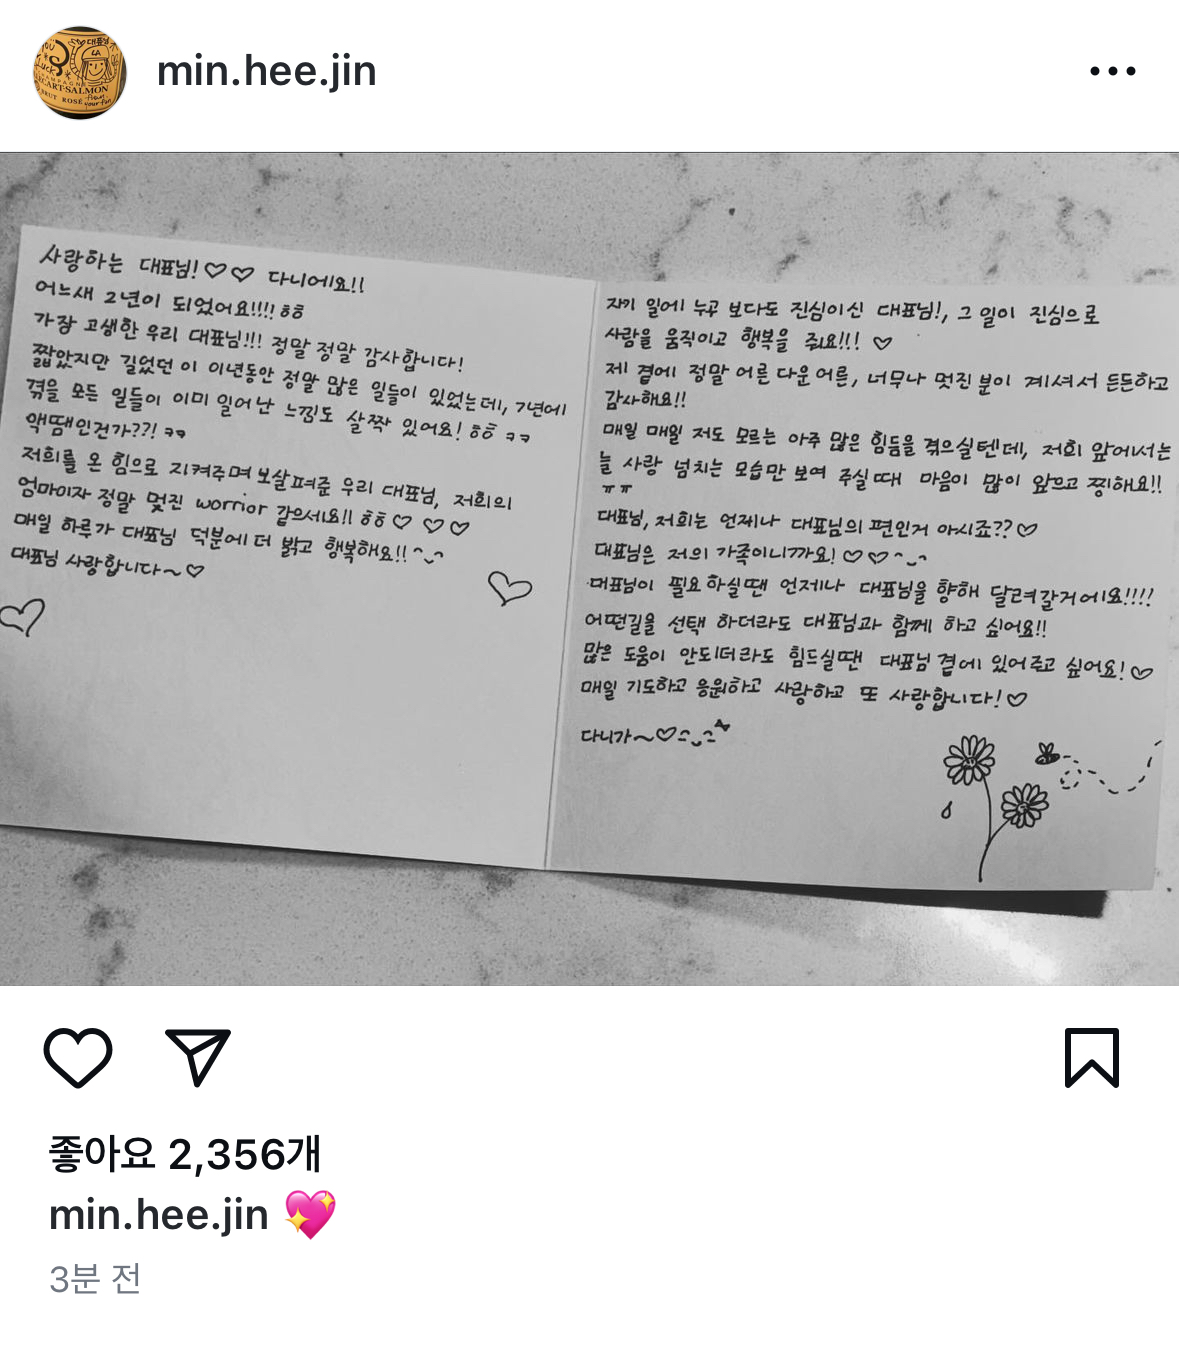 min.hee.jin
사랑하는 대표님!♡♡ 다니에요!!
어느새 2년이 되었어요!!!! ㅎㅎ
가장 고생한 우리 대표님!!! 정말 정말 감사합니다!
짧았지만 길었던 이 이년동안 정말 많은 일들이 있었는데, 7년에
겪을 모든 일들이 이미 일어난 느낌도 살짝 있어요! ㅎㅎ ㅋㅋ
액땜인건가??! ㅋㅋ
저희를 온 힘으로 지켜주며 보살펴준 우리 대표님, 저희의
엄마이자 정말 멋진 worrior 같으세요!! ㅎㅎ♡ ♡♡
매일 하루가 대표님 덕분에 더 밝고 행복해요!! ^‿^
대표님 사랑합니다~♡
자기 일에 누구 보다도 진심이신 대표님!, 그 일이 진심으로
사람을 움직이고 행복을 줘요!!! ♡
제 곁에 정말 어른 다운 어른, 너무나 멋진 분이 계셔서 든든하고
감사해요!!
매일 매일 저도 모르는 아주 많은 힘듬을 겪으실텐데, 저희 앞에서는
늘 사랑 넘치는 모습만 보여 주실 때 마음이 많이 앞으고 찡해요!!
ㅠㅠ
대표님, 저희는 언제나 대표님의 편인거 아시죠??♡
대표님은 저의 가족이니까요!♡♡^‿^
대표님이 필요 하실땐 언제나 대표님을 향해 달려갈거에요!!!!
어떤길을 선택 하더라도 대표님과 함께 하고 싶어요!!
많은 도움이 안되더라도 힘드실땐 대표님 곁에 있어주고 싶어요!♡
매일 기도하고 응원하고 사랑하고 또 사랑합니다!♡
다니가~♡^‿^
좋아요 2,356개
min.hee.jin 💖
3분 전